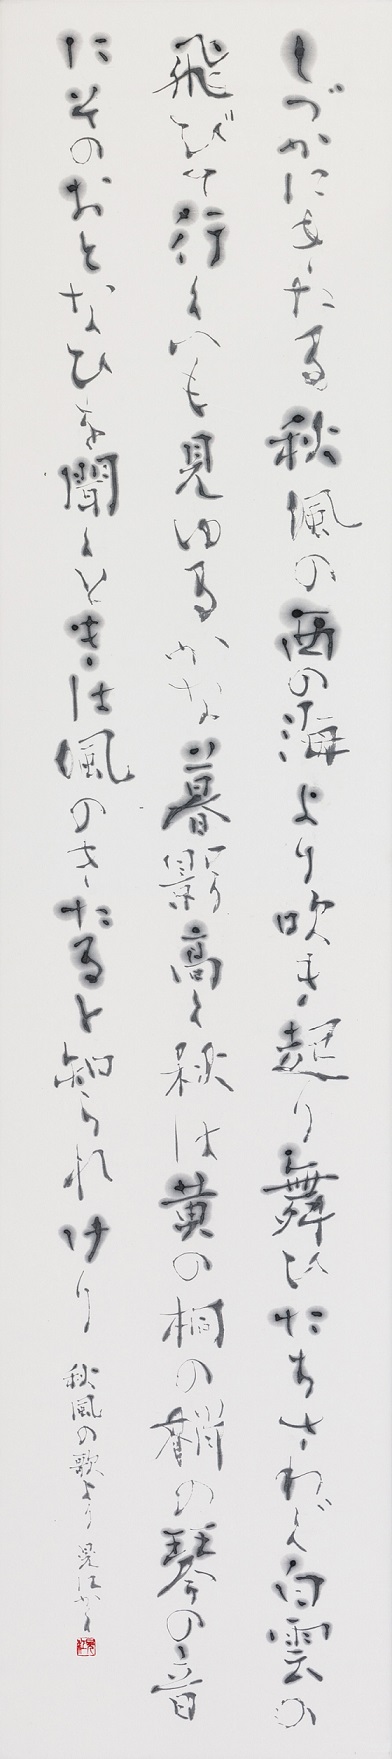 しづかにきたる秋風の西の海より吹き起り舞ひたちさわぐ白雲の
飛びて行くへも見ゆるかな暮影高く秋は黄の桐の梢の琴の音
にそのおとなひを聞くときは風のきたると知られけり
秋風の歌より かく